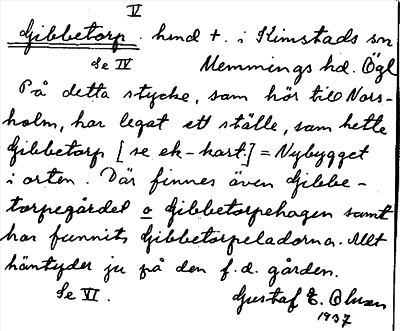 V
Gibbetorp. hmd t. i Kimstads sn
Se IV Memmings hd. Ögl
På detta stycke, som hör till Nors-
holm, har legat ett ställe, som hette
Gibbetorp [se ek-kart.] = Nybygget
i orten. Där finnes även Gibbe-
torpegärdet o Gibbetorpehagen samt
har funnits Gibbetorpeladorna. Allt
häntyder ju på den f.d. gården.
Se VI. Gustaf E. Olsson
1937